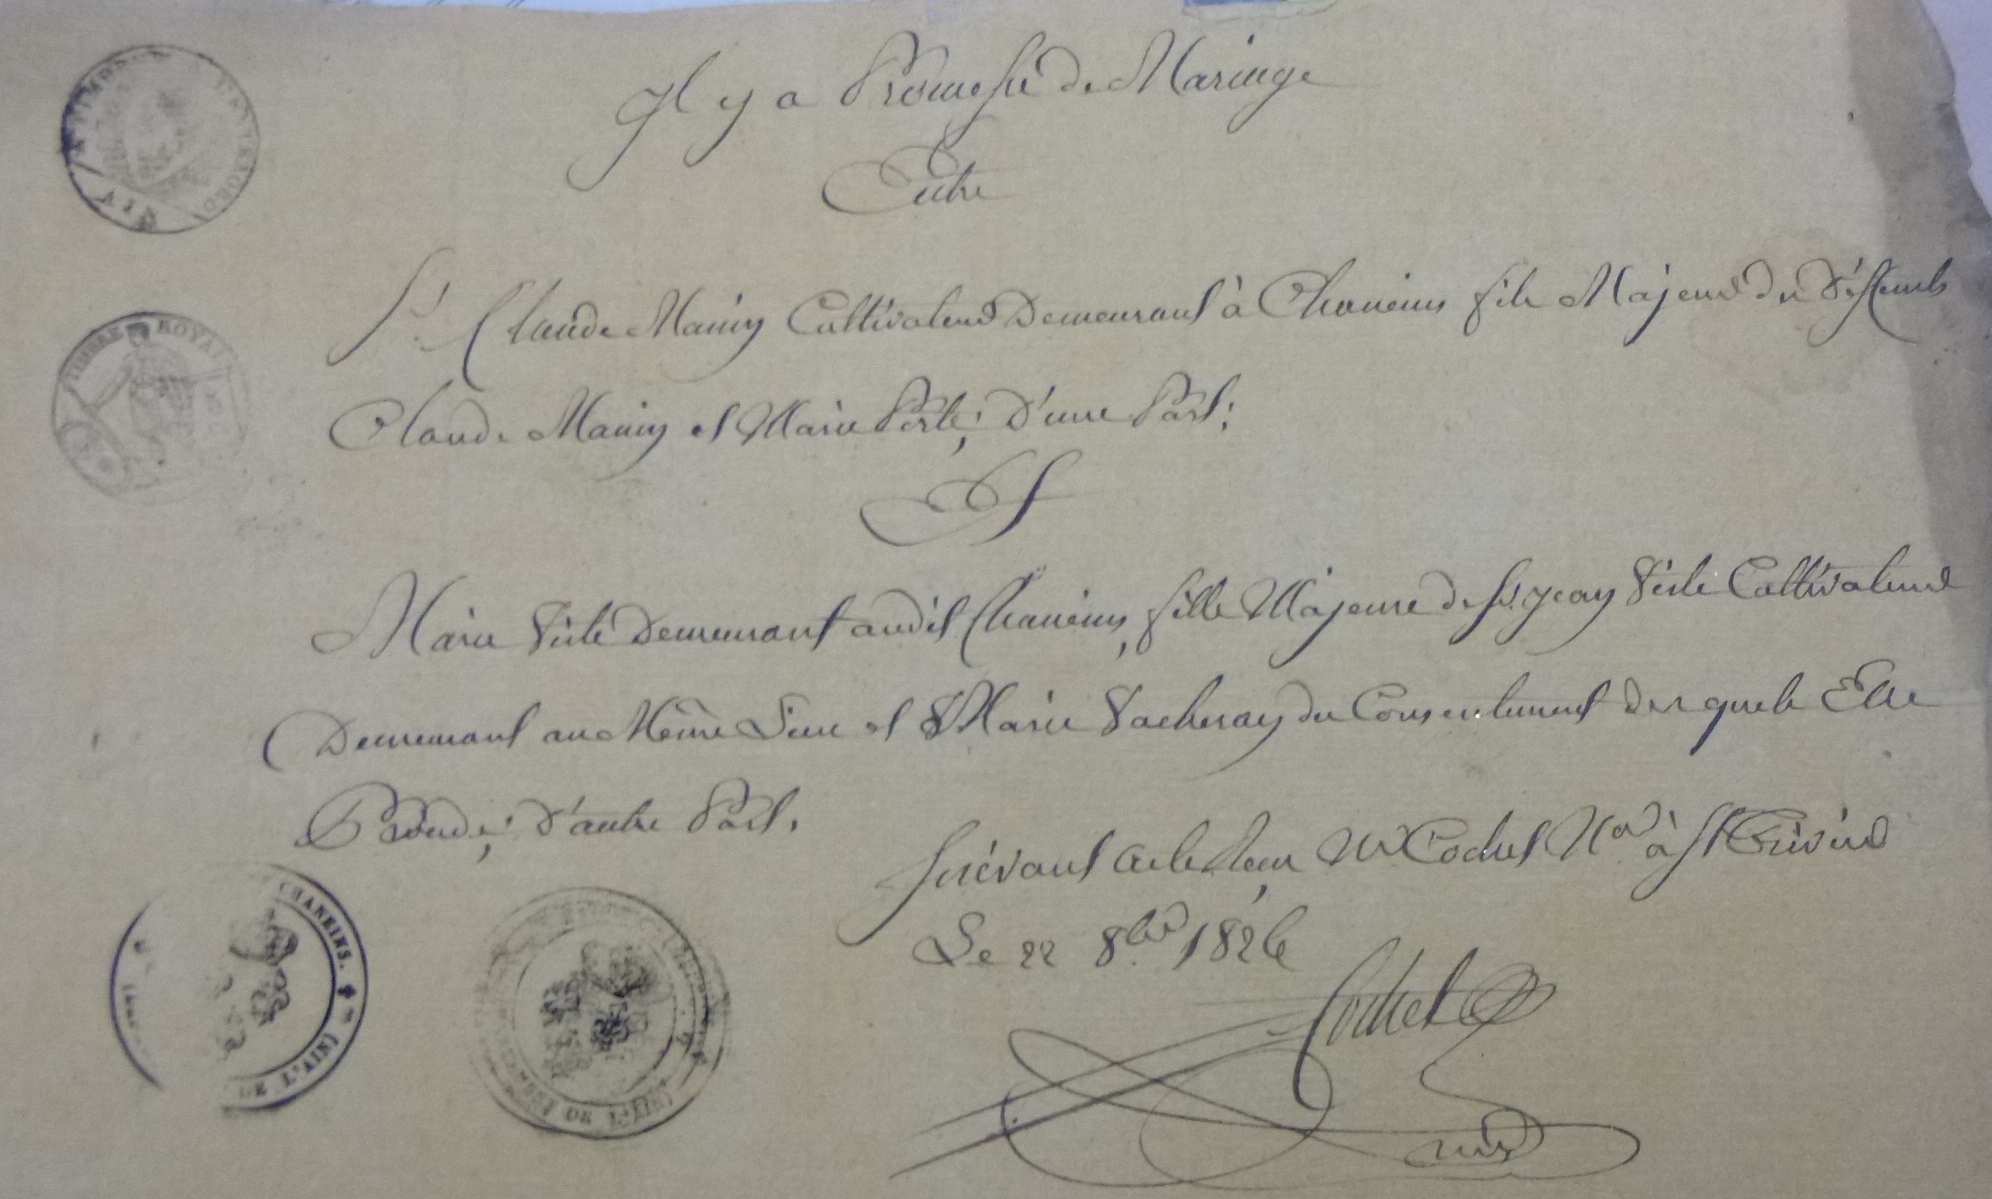 Il y a Promesse de Mariage
Entre
Sr. Claude Mainy Cultivateur Demeurant à Chaneins fils Majeur de Défunts
Claude Mainy et Marie Perle; D'une Part;
Et
Marie Viele Demeurant audit Chaneins, fille Majeure de Sr. Jean Viele Cultivateur
Demeurant au Même Lieu et Marie Vacheray du Consentement des quels Elle
Procede; D'autre Part.
Suivant acte reçu Me Cochet Nre à St Trivier
Le 22 8bre 1826
Cochet
TIMBRE ROYAL
CHANEINS.
DE L'AIN
DE L'AIN